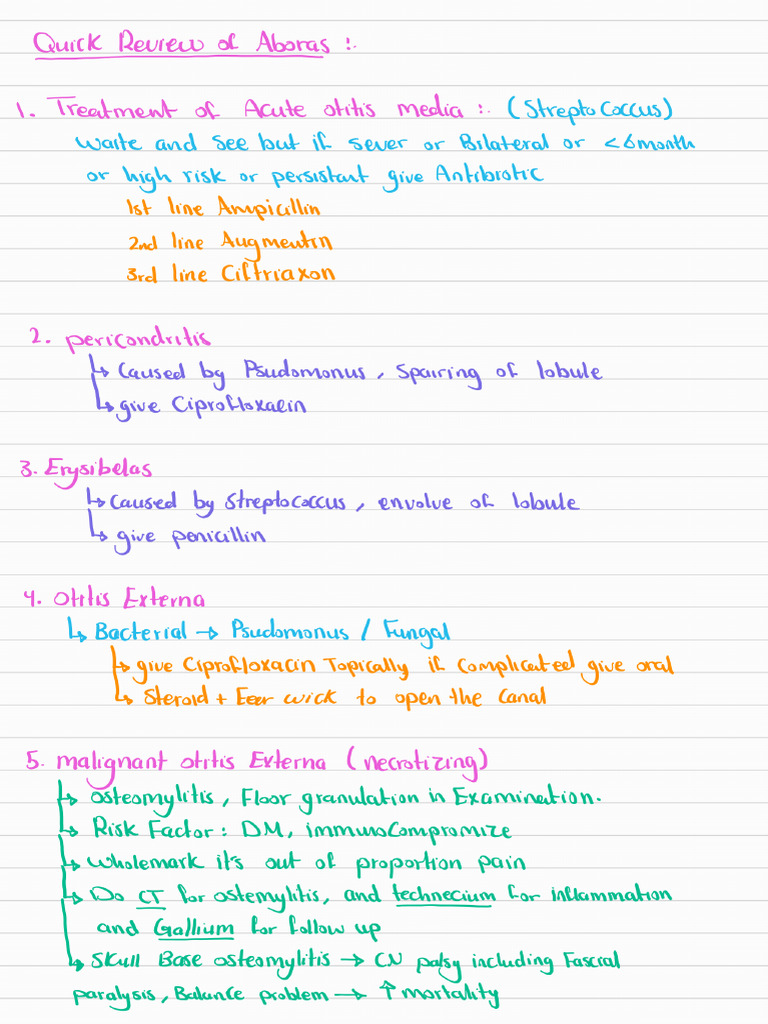 Quick Review of Aboras :.
1. Treatment of Acute otitis media :. (Streptococcus)
waite and see but if sever or Bilateral or <6month
or high risk or persistant give Antibiotic
1st line Ampicillin
2nd line Augmentin
3rd line Ciftriaxon
2. pericondritis
↳ Caused by Psudomonus, Spairing of lobule
↳ give Ciprofloxacin
3. Erysibelas
↳ Caused by Streptococcus, envolve of lobule
↳ give penicillin
4. Otitis Externa
↳ Bacterial → Psudomonus / Fungal
↳ give Ciprofloxacin Topically if Complicated give oral
↳ Steroid + Eear wick to open the Canal
5. malignant otitis Externa (necrotizing)
↳ osteomylitis, Floor granulation in Examination.
↳ Risk Factor: DM, immunoCompromize
↳ Wholemark it's out of proportion pain
↳ Do CT for ostemylitis, and technecium for inflammation
and Gallium for follow up
↳ Skull Base osteomylitis → CN palsy including Fascial
paralysis, Balance problem → ↑ mortality